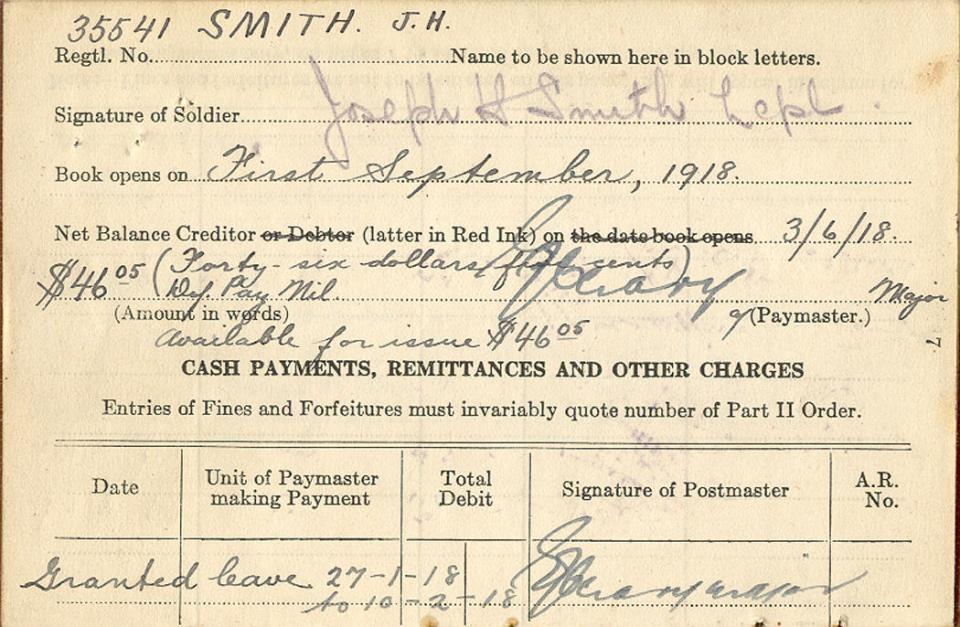 35541 SMITH. J.H.
Regtl. No. Name to be shown here in block letters.
Signature of Soldier Joseph H Smith Lcpl.
Book opens on First September, 1918.
Net Balance Creditor or Debtor (latter in Red Ink) on the date book opens 3/6/18.
$46 05 (Forty-six dollars, five cents)
Def. Pay Nil. Major
(Amount in words) (Paymaster.)
Available for issue $46 05
CASH PAYMENTS, REMITTANCES AND OTHER CHARGES
Entries of Fines and Forfeitures must invariably quote number of Part II Order.
Date Unit of Paymaster making Payment Total Debit Signature of Postmaster A.R. No.
Granted leave 27-1-18
to 10-2-18 Major